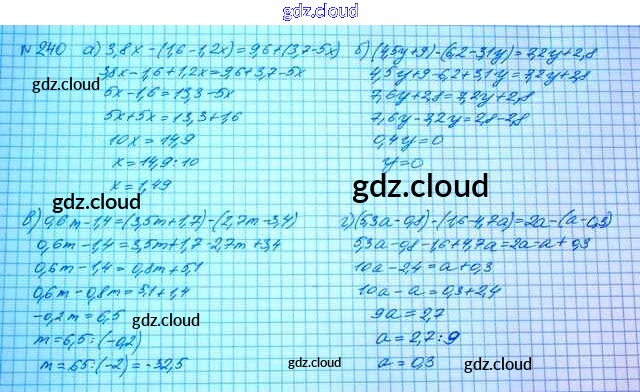 gdz.cloud
№240 а) 3,8x-(1,6-1,2x)=9,6+(3,7-5x)
3,8x-1,6+1,2x=9,6+3,7-5x
5x-1,6=13,3-5x
5x+5x=13,3+1,6
10x=14,9
x=14,9:10
x=1,49
б) (4,5y+9)-(6,2-3,1y)=7,2y+2,8
4,5y+9-6,2+3,1y=7,2y+2,8
7,6y+2,8=7,2y+2,8
7,6y-7,2y=2,8-2,8
0,4y=0
y=0
в) 0,6m-1,4=(3,5m+1,7)-(2,7m-3,4)
0,6m-1,4=3,5m+1,7-2,7m+3,4
0,6m-1,4=0,8m+5,1
0,6m-0,8m=5,1+1,4
-0,2m=6,5
m=6,5:(-0,2)
m=65:(-2)=-32,5
г) (5,3a-0,8)-(1,6-4,7a)=2a-(a-0,3)
5,3a-0,8-1,6+4,7a=2a-a+0,3
10a-2,4=a+0,3
10a-a=0,3+2,4
9a=2,7
a=2,7:9
a=0,3
gdz.cloud
gdz.cloud
gdz.cloud
gdz.cloud
gdz.cloud
gdz.cloud
gdz.cloud
gdz.cloud